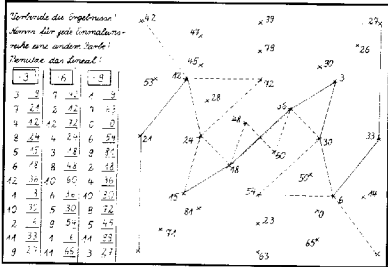 Verbinde die Ergebnisse!
Nimm für jede Einmaleins-
reihe eine andere Farbe!
Benutze das Lineal!
·3 ·6 ·9
3 9 7 42 1 9
7 21 2 12 7 63
4 12 12 72 0 0
8 24 4 24 6 54
5 15 3 18 9 81
6 18 8 48 2 18
12 36 10 60 4 36
1 3 6 36 10 90
10 30 5 30 8 72
2 6 9 54 5 45
11 33 1 6 11 99
9 27 11 66 3 27
42 39 27
47
79 26
45 90
53 12 72 3
28
36
48
21 24 30 33
60
18
50
15 54 6 14
81 0
23
71
65
63